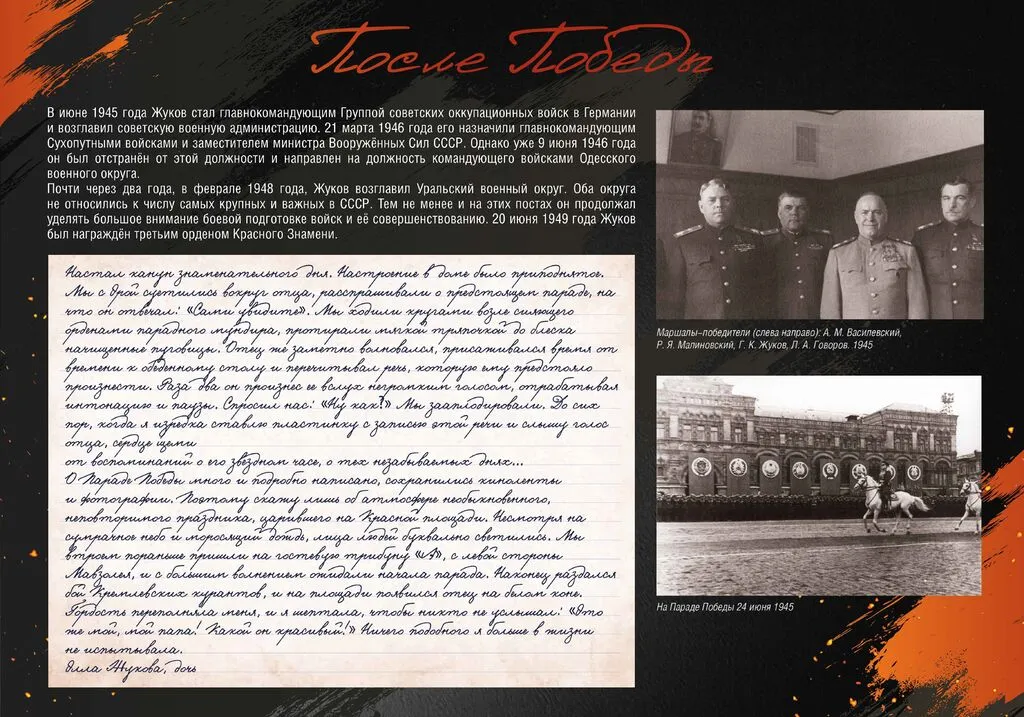 После Победы
В июне 1945 года Жуков стал главнокомандующим Группой советских оккупационных войск в Германии
и возглавил советскую военную администрацию. 21 марта 1946 года его назначили главнокомандующим
Сухопутными войсками и заместителем министра Вооружённых Сил СССР. Однако уже 9 июня 1946 года
он был отстранён от этой должности и направлен на должность командующего войсками Одесского
военного округа.
Почти через два года, в феврале 1948 года, Жуков возглавил Уральский военный округ. Оба округа
не относились к числу самых крупных и важных в СССР. Тем не менее и на этих постах он продолжал
уделять большое внимание боевой подготовке войск и её совершенствованию. 20 июня 1949 года Жуков
был награждён третьим орденом Красного Знамени.
Настал канун знаменательного дня. Настроение в доме было приподнятое.
Мы с Эрой суетились вокруг отца, расспрашивали о предстоящем параде, на
что он отвечал: «Сами увидите». Мы ходили кругами возле сияющего
орденами парадного мундира, протирали мягкой тряпочкой до блеска
начищенные пуговицы. Отец же заметно волновался, присаживался время от
времени к обеденному столу и перечитывал речь, которую ему предстояло
произнести. Раза два он произнес ее вслух негромким голосом, отрабатывая
интонацию и паузы. Спросил нас: «Ну как?» Мы зааплодировали. До сих
пор, когда я изредка ставлю пластинку с записью этой речи и слышу голос
отца, сердце щемит
от воспоминаний о его звездном часе, о тех незабываемых днях...
О Параде Победы много и подробно написано, сохранились киноленты
и фотографии. Поэтому скажу лишь об атмосфере необыкновенного,
неповторимого праздника, царившего на Красной площади. Несмотря на
сумрачное небо и моросящий дождь, лица людей буквально светились. Мы
втроем пораньше пришли на гостевую трибуну «А», с левой стороны
Мавзолея, и с большим волнением ожидали начала парада. Наконец раздался
бой Кремлевских курантов, и на площади появился отец на белом коне.
Гордость переполняла меня, и я шептала, чтобы никто не услышал: «Это
же мой, мой папа! Какой он красивый!» Ничего подобного я больше в жизни
не испытывала.
Элла Жукова, дочь
Маршалы-победители (слева направо): А. М. Василевский,
Р. Я. Малиновский, Г. К. Жуков, Л. А. Говоров. 1945
На Параде Победы 24 июня 1945